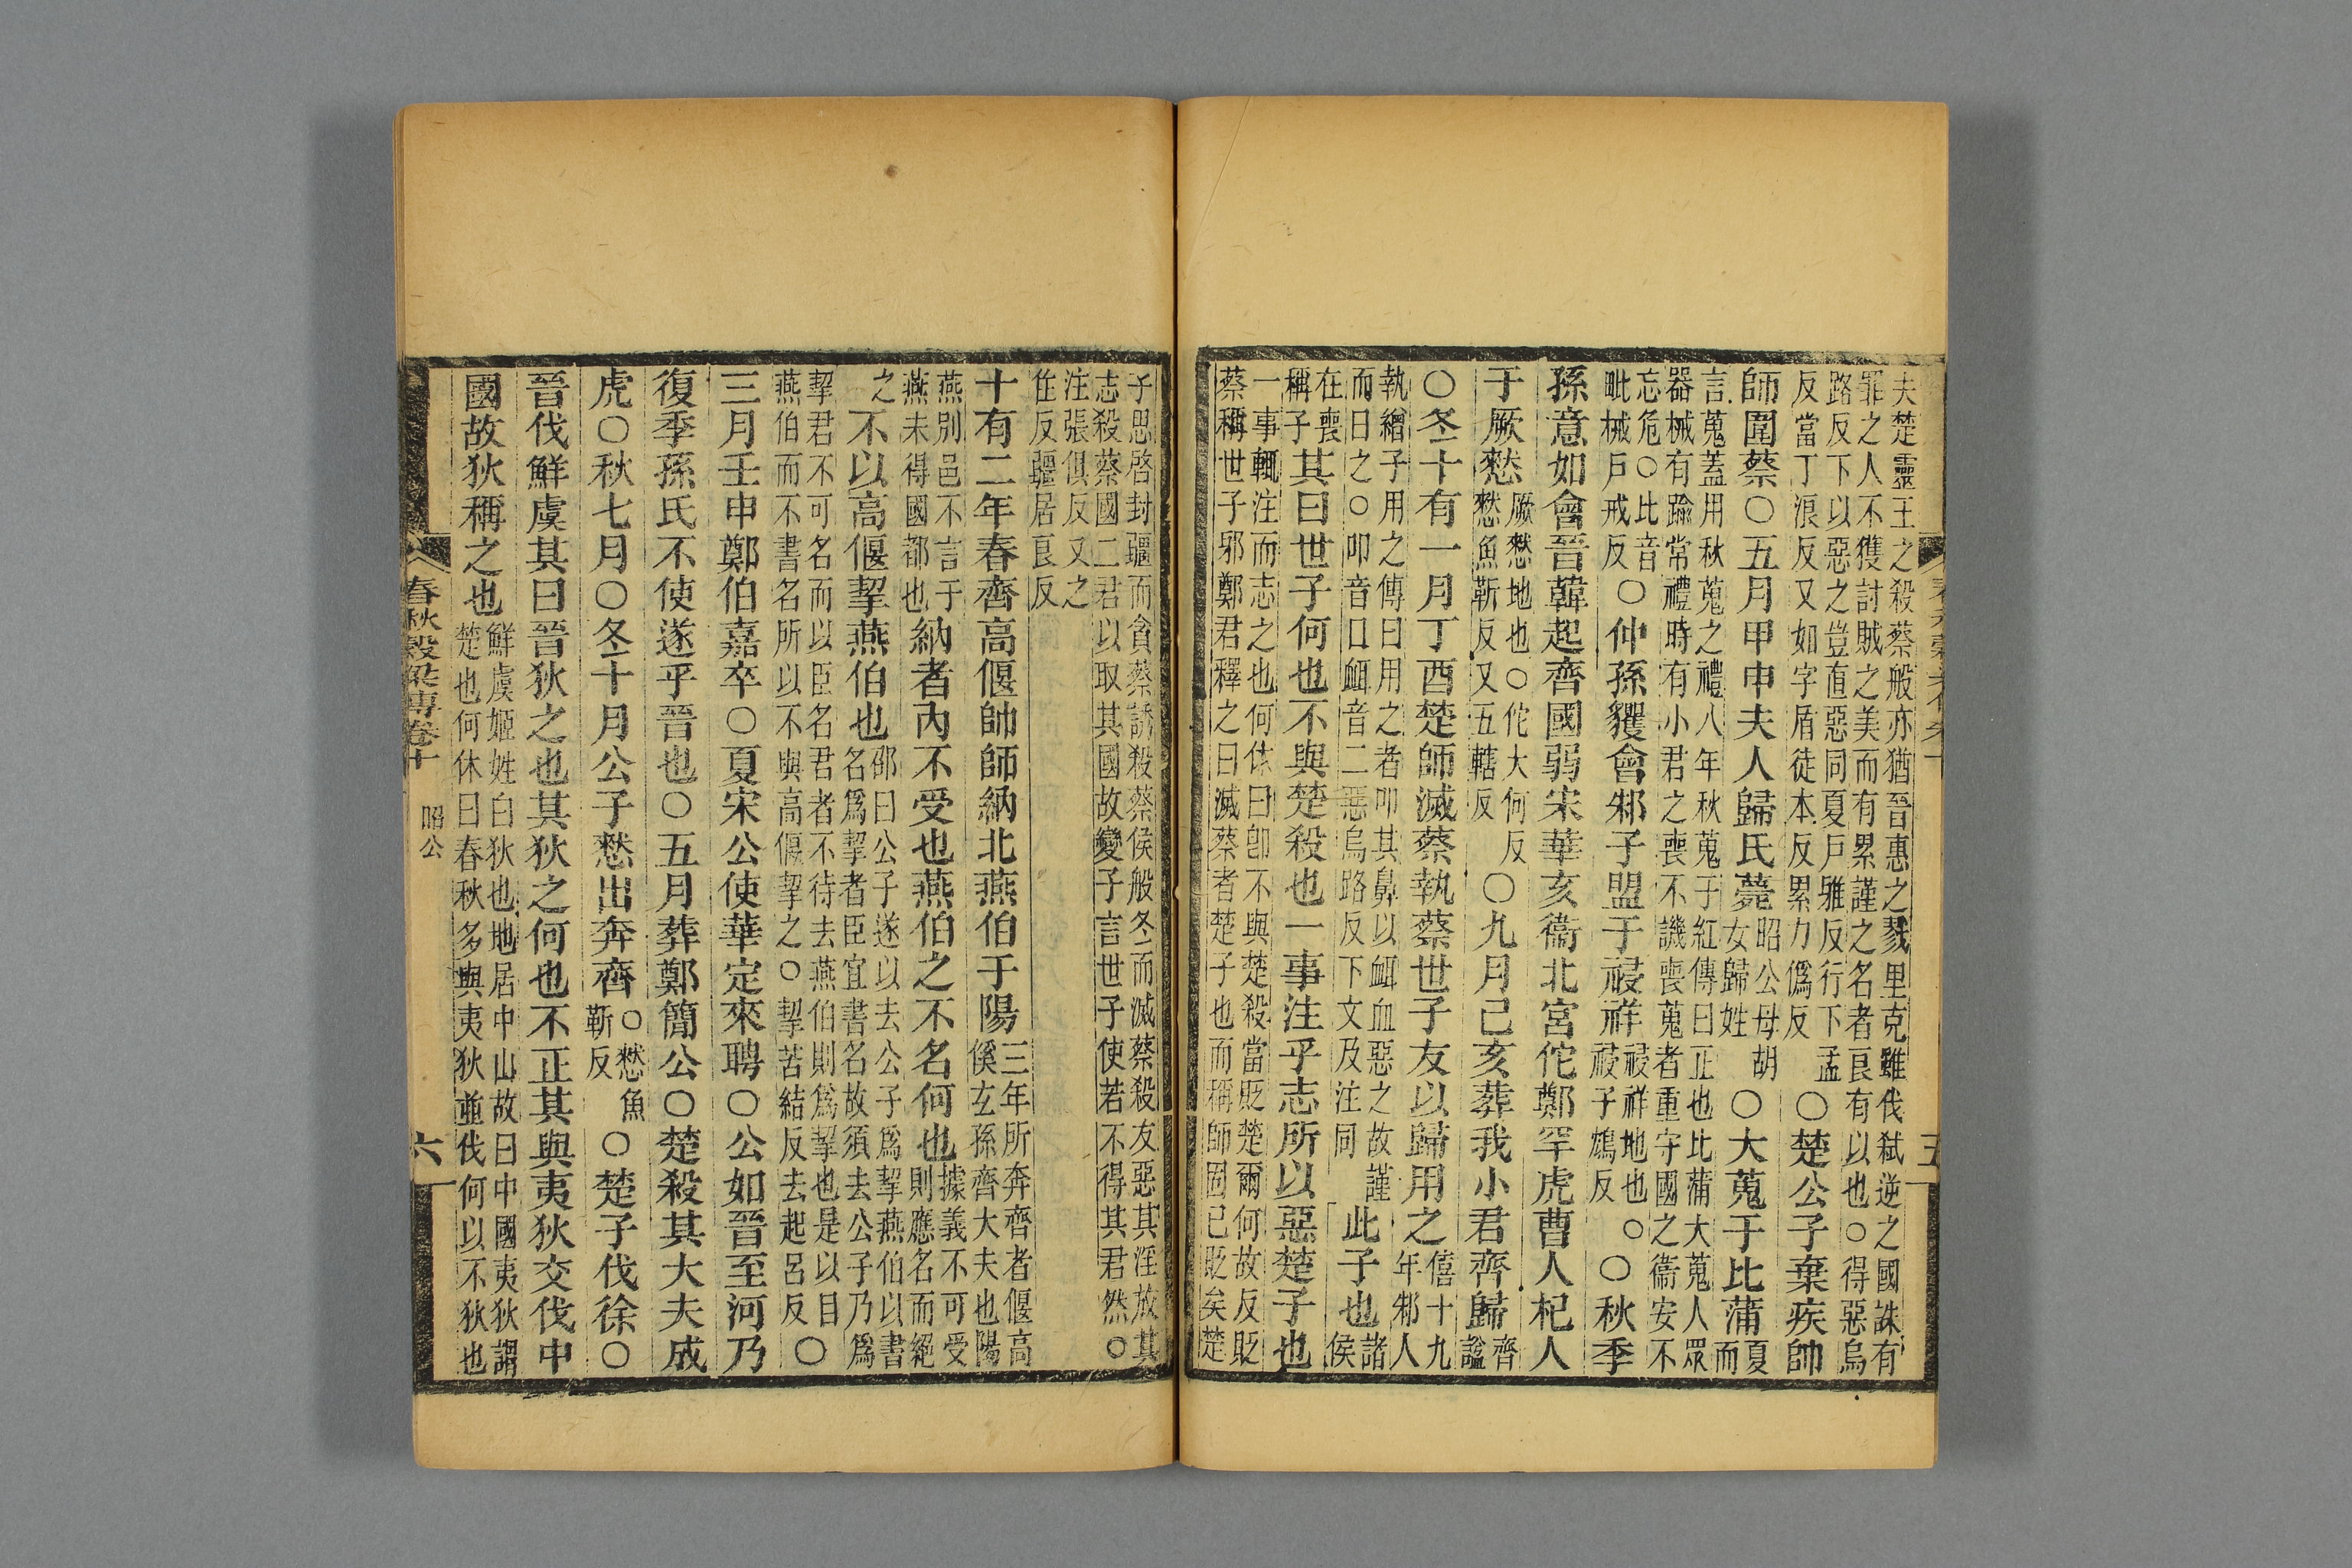 夫楚靈王之殺蔡般亦猶晉惠之戮里克雖伐弒逆之國誅有
罪之人不獲討賊之美而有累謹之名者良有以也○得惡烏
路反下以惡之豈直惡同夏戶雅反行下孟
反當丁浪反又如字盾徒本反累力僞反
○楚公子棄疾帥
師圍蔡○五月甲申夫人歸氏薨
昭公母胡
女歸姓
○大蒐于比蒲
夏
而
言蒐蓋用秋蒐之禮八年秋蒐于紅傳曰正也比蒲大蒐人眾
器械有踰常禮時有小君之喪不譏喪蒐者重守國之衞安不
忘危○比音
毗械戶戒反
○仲孫貜會邾子盟于祲祥
祲祥地也○
祲子鴆反
○秋季
孫意如會晉韓起齊國弱宋華亥衞北宮佗鄭罕虎曹人杞人
于厥憖
厥憖地也○佗大何反
憖魚靳反又五轄反
○九月己亥葬我小君齊歸
齊
諡
○冬十有一月丁酉楚師滅蔡執蔡世子友以歸用之
僖十九
年邾人
執繒子用之傳曰用之者叩其鼻以衈血惡之故謹
而日之○叩音口衈音二惡烏路反下文及注同
此子也
諸
侯
在喪
稱子
其曰世子何也不與楚殺也一事注乎志所以惡楚子也
一事輒注而志之也何休曰卽不與楚殺當貶楚爾何故反貶
蔡稱世子邪鄭君釋之曰滅蔡者楚子也而稱師固已貶矣楚
五
子思啓封疆而貪蔡誘殺蔡侯般冬而滅蔡殺友惡其淫放其
志殺蔡國二君以取其國故變子言世子使若不得其君然○
注張俱反又之
住反疆居良反
十有二年春齊高偃帥師納北燕伯于陽
三年所奔齊者偃高
傒玄孫齊大夫也陽
燕別邑不言于
燕未得國都也
納者內不受也燕伯之不名何也
據義不可受
則應名而絕
之
不以高偃挈燕伯也
邵曰公子遂以去公子爲挈燕伯以書
名爲挈者臣宜書名故須去公子乃爲
挈君不可名而以臣名君者不待去燕伯則爲挈也是以目
燕伯而不書名所以不與高偃挈之○挈苦結反去起呂反
○
三月壬申鄭伯嘉卒○夏宋公使華定來聘○公如晉至河乃
復季孫氏不使遂乎晉也○五月葬鄭簡公○楚殺其大夫成
虎○秋七月○冬十月公子憖出奔齊
○憖魚
靳反
○楚子伐徐○
晉伐鮮虞其曰晉狄之也其狄之何也不正其與夷狄交伐中
國故狄稱之也
鮮虞姬姓白狄也地居中山故曰中國夷狄謂
楚也何休曰春秋多與夷狄並伐何以不狄也
春秋穀梁傳卷十
昭公
六